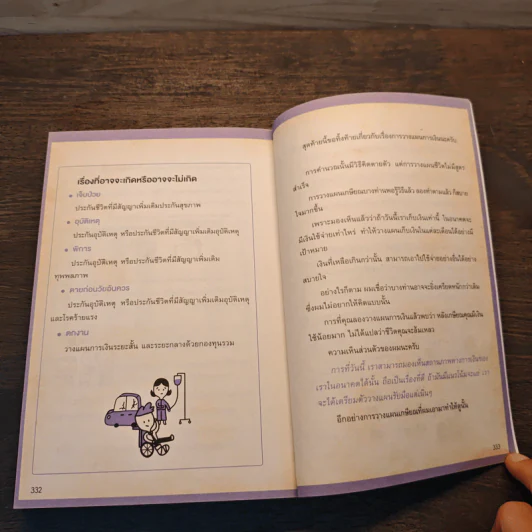 เรื่องที่อาจจะเกิดหรืออาจจะไม่เกิด
เจ็บป่วย
ประกันชีวิตที่มีสัญญาเพิ่มเติมประกันสุขภาพ
อุบัติเหตุ
ประกันอุบัติเหตุ หรือประกันชีวิตที่มีสัญญาเพิ่มเติมอุบัติเหตุ
พิการ
ประกันอุบัติเหตุ หรือประกันชีวิตที่มีสัญญาเพิ่มเติม
ทุพพลภาพ
ตายก่อนวัยอันควร
ประกันอุบัติเหตุ หรือประกันชีวิตที่มีสัญญาเพิ่มเติมอุบัติเหตุ
และโรคร้ายแรง
ตกงาน
วางแผนการเงินระยะสั้น และระยะกลางด้วยกองทุนรวม
332
สุดท้ายนี้ขอทิ้งท้ายเกี่ยวกับเรื่องการวางแผนการเงินนะครับ
การคำนวณนั้นมีวิธีคิดตายตัว แต่การวางแผนชีวิตไม่มีสูตร
สำเร็จ
การวางแผนเกษียณบางท่านพอรู้วิธีแล้ว ลองทำตามแล้ว ก็สบาย
ใจมากขึ้น
เพราะมองเห็นแล้วว่าถ้าวันนี้เราเก็บเงินเท่านี้ ในอนาคตจะ
มีเงินใช้จ่ายเท่าไหร่ ทำให้วางแผนเก็บเงินในแต่ละเดือนได้อย่างมี
เป้าหมาย
เงินที่เหลือเกินกว่านั้น สามารถเอาไปใช้จ่ายอย่างอื่นได้อย่าง
สบายใจ
อย่างไรก็ตาม ผมเชื่อว่าบางท่านอาจจะยิ่งเครียดหนักกว่าเดิม
ซึ่งผมไม่อยากให้คิดแบบนั้น
การที่คุณลองวางแผนการเงินแล้วพบว่า หลังเกษียณคุณมีเงิน
ใช้น้อยมาก ไม่ได้แปลว่าชีวิตคุณจะล้มเหลว
ความเห็นส่วนตัวของผมนะครับ
การที่วันนี้ เราสามารถมองเห็นสถานภาพทางการเงินของ
เราในอนาคตได้นั้น ถือเป็นเรื่องที่ดี
จะได้เตรียมตัววางแผนรับมือแต่เนิ่นๆ
อีกอย่างการวางแผนเกษียณที่ผมเอามาทำให้ดูนั้น
333